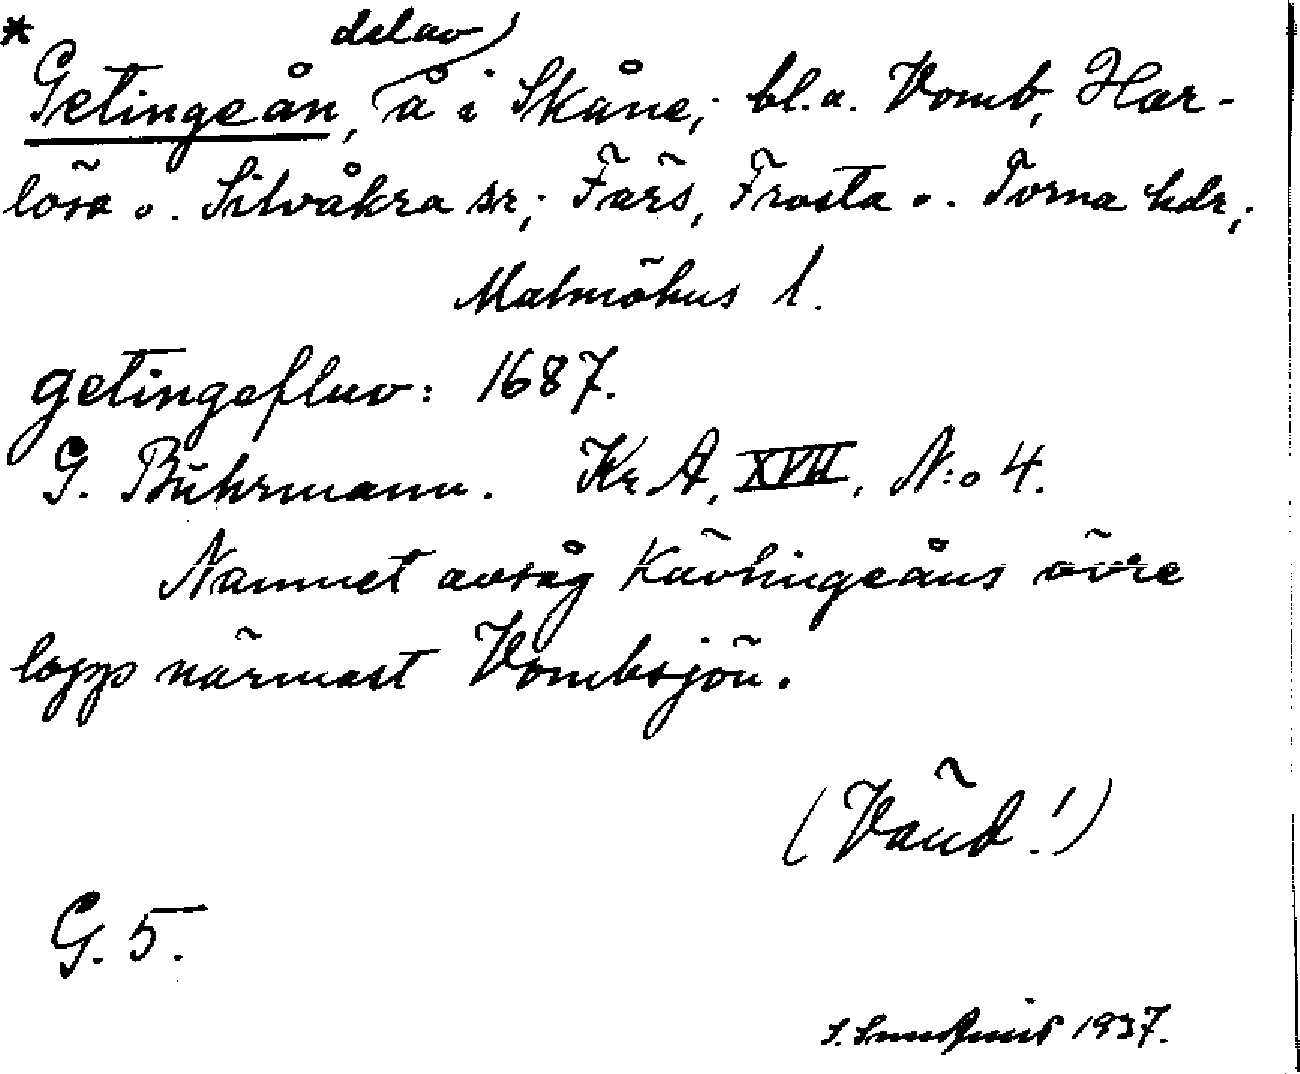 * Getingeån, del av å i Skåne; bl.a. Vomb, Har-
lösa o. Silvåkra sr; Färs, Frosta o. Torna hdr;
Malmöhus l.
getingefluv: 1687.
G. Buhrmann. Kr A, XVII, N:o 4.
Namnet avsåg Kävlingeåns övre
lopp närmast Vombsjön.
(Vänd!)
G. 5.
1937.